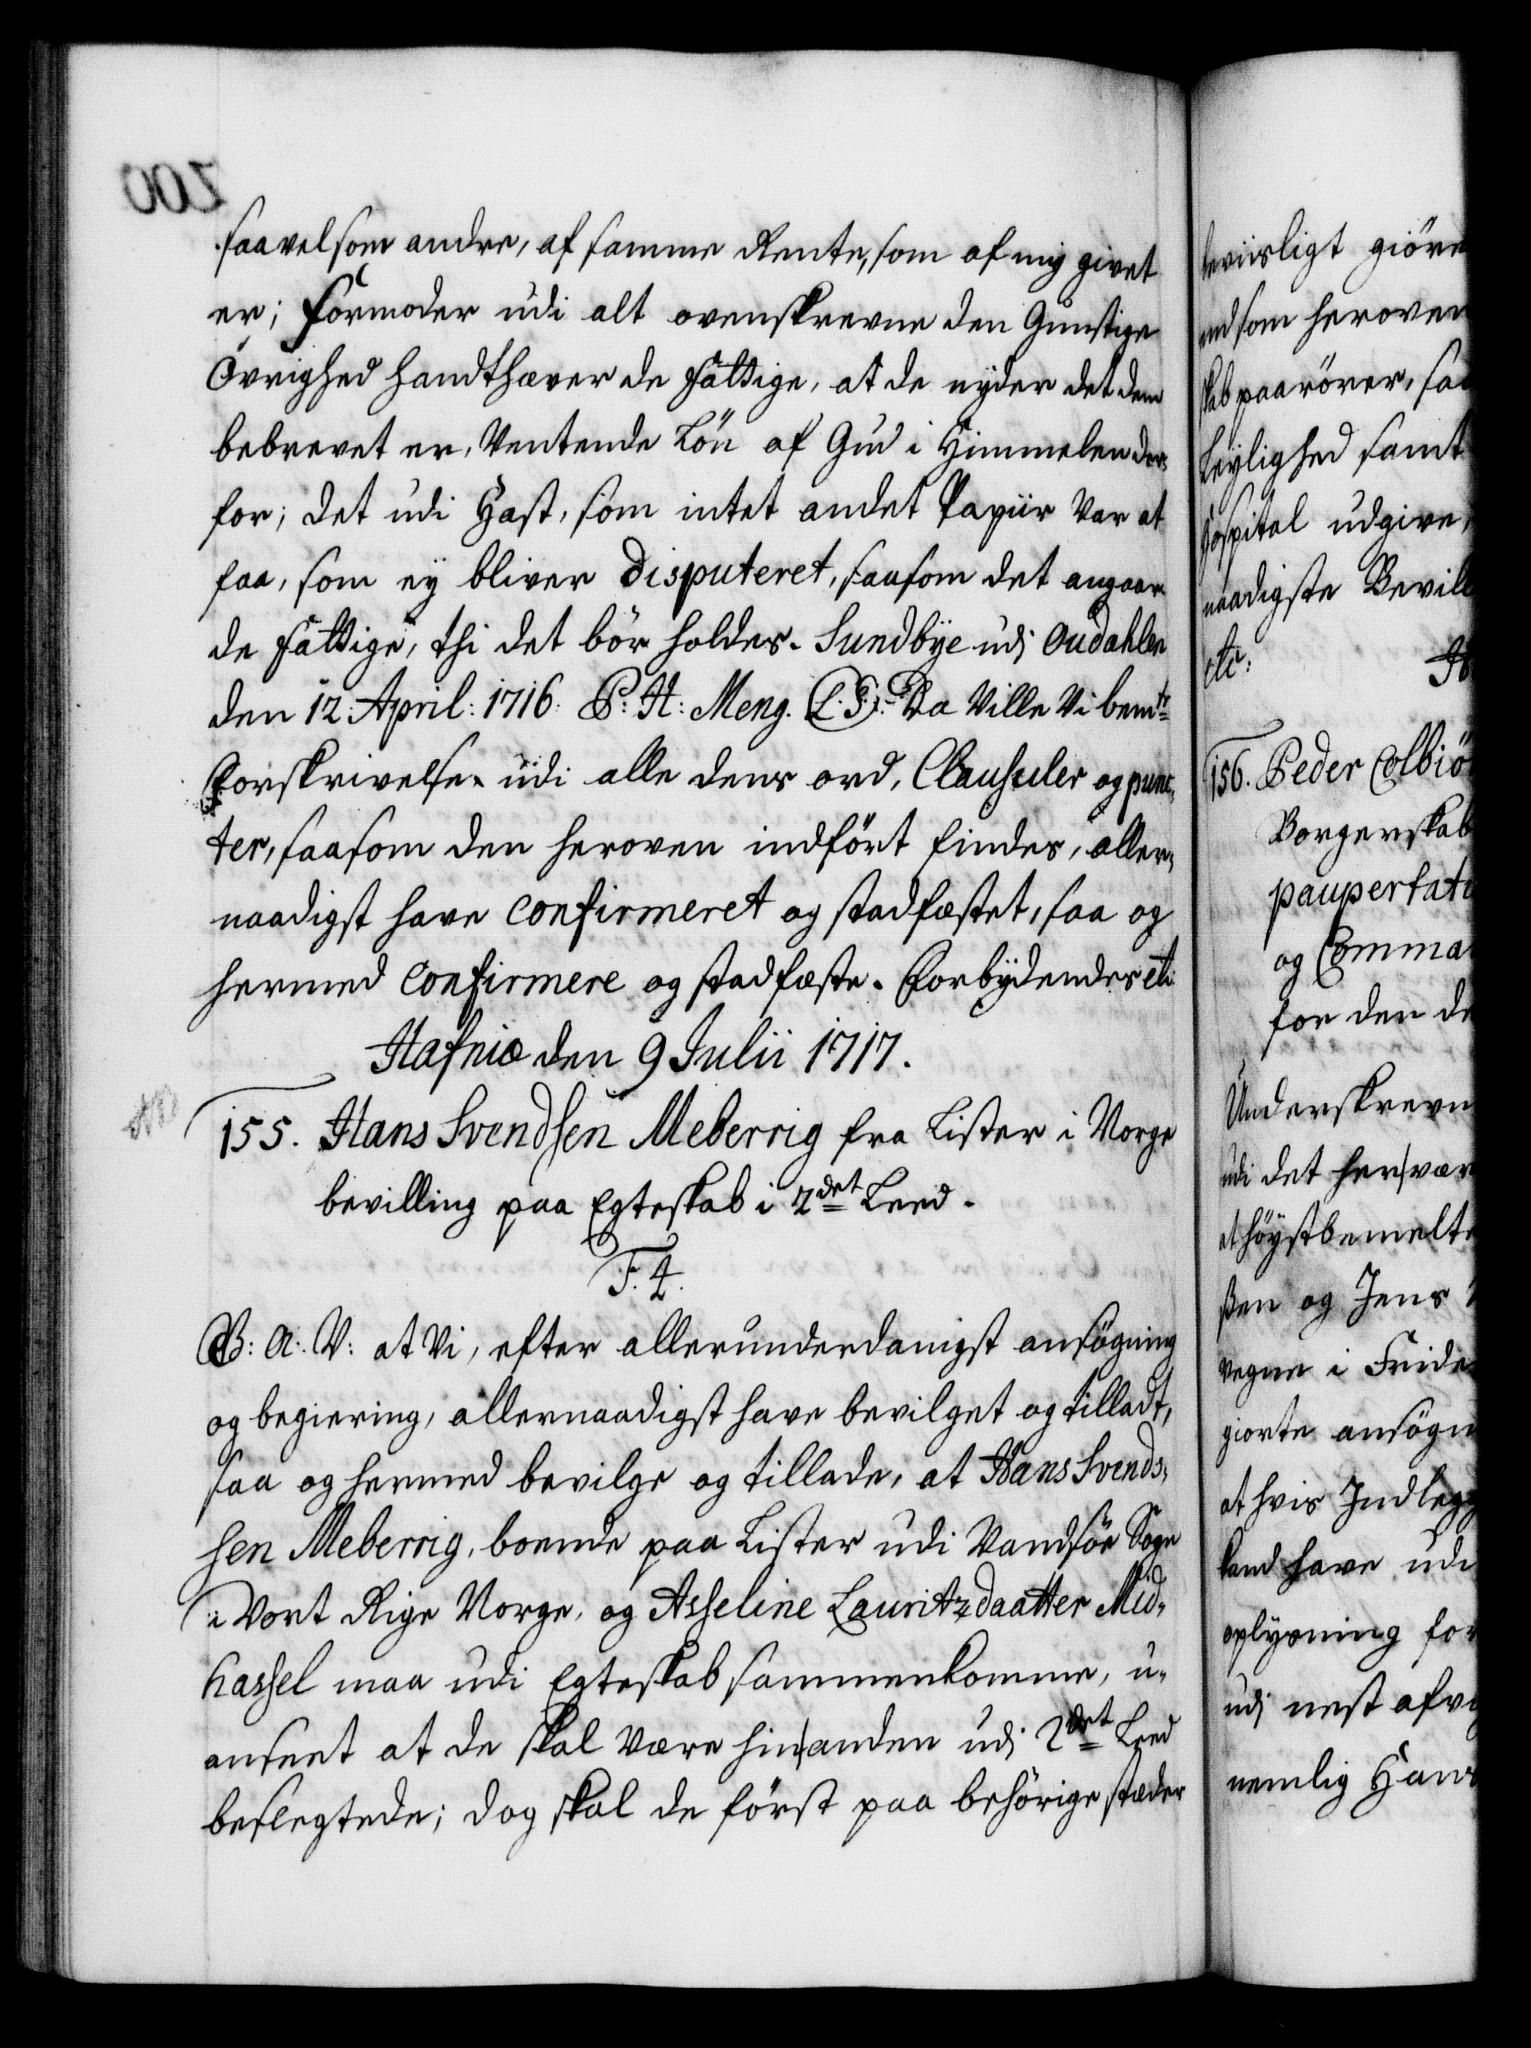 saavelsom andre, af samme Rente, som af mig givet
er; Formoder udi alt ovenskrevne den Gunstige
Övrighed handthæver de Fattige, at de nyder det dem
bebrevet er, Ventende Lön af Gud i Himmelen der-
for; det udi Hast, som intet andet Papiir var at
faa, som ey bliver disputeret, saasom det angaar
de Fattige, thi det bör holdes. Sundbye udi Oudahlen
den 12. April: 1716. P: H: Meng. (L.S.) Da Ville Vi bemte
Forskrivelse udi alle dens ord, Clausuler og punc-
ter, saasom den heroven indfört findes, aller-
naadigst have confirmeret og stadfæstet, saa og
hermed confirmere og stadfæste. Forbydendes etc:
Hafniæ den 9 Julii 1717.
155. Hans Svendsen Meberrig fra Lister i Norge
bevilling paa Egteskab i 2det Leed.
F. 4.
G: A: V: at Vi, efter allerunderdanigst ansögning
og begiering, allernaadigst have bevilget og tilladt,
saa og hermed bevilge og tillade, at Hans Svends-
sen Meberrig, boende paa Lister udi Vandsöe Sogn
i Vort Rige Norge, og Asseline Lauritzdaatter Mid-
hassel maa udi Egteskab sammenkomme, u-
anseet at de skal være hinanden udi 2det Leed
beslegtede; dog skal de först paa behörige stæder
200
beviisligt giöre
end som heroven
skab paarörer, saa
Leylighed samt
Hospital udgive,
naadigste Bevill
etc:
156. Peder Colbiö
Borgerskab
paupertat
og Comma
for den d
Underskrevn
udi det her, vær
at höystbemelte
ßen og Jens
vegne i Fride
giorte ansögn
at hvis Indleg
kand have udi
oplysning for
udi nest afvi
nemlig Hans